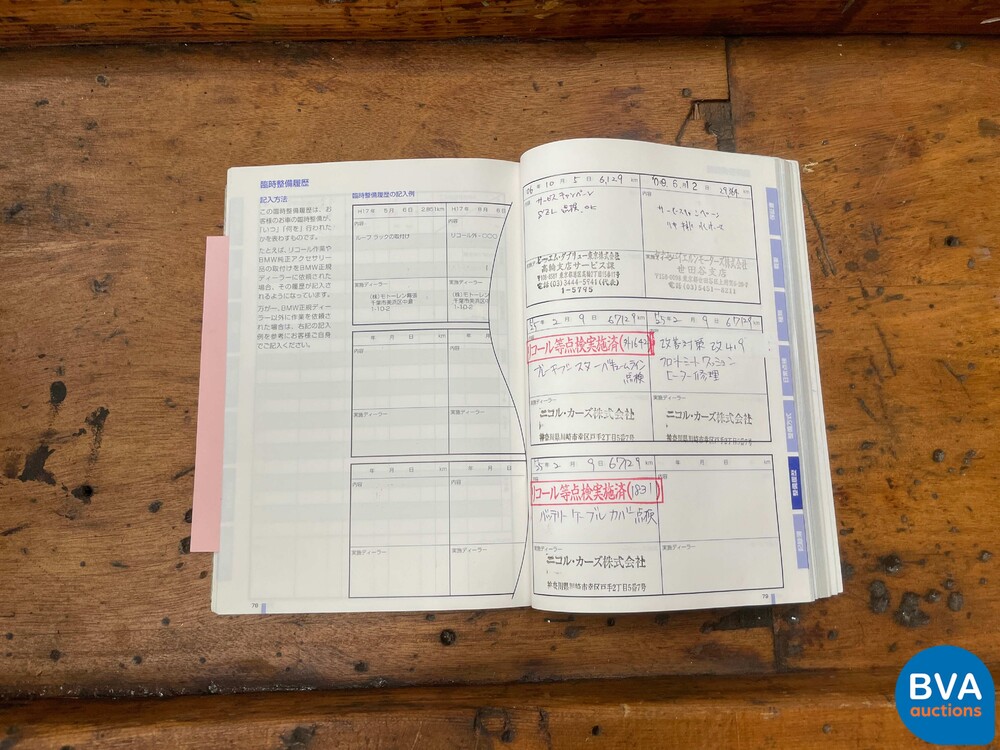 臨時整備履歴
記入方法
この臨時整備履歴は、お
客様のお車の臨時整備が、
「いつ」「何を」行われた
かを表わすものです。
たとえば、リコール作業や
BMW純正アクセサリ
ー品の取付けをBMW正規
ディーラーに依頼された
場合、その履歴が記入さ
れるようになっています。
万が一、BMW正規ディー
ラー以外に作業を依頼さ
れた場合は、右記の記入
例を参考にお客様ご自身
でご記入ください。
臨時整備履歴の記入例
H17年 5月 6日 2,851km
内容
ルーフ ラックの取付け
実施ディーラー
(株)モトーレン幕張
千葉市美浜区中瀬
1-10-2
H17年 8月 6日
内容
リコール外-○○○
実施ディーラー
(株)モトーレン
千葉市美浜区
1-10-2
年 月 日
内容
実施ディーラー
年 月 日
内容
実施ディーラー
年 月 日
内容
実施ディーラー
年 月 日
内容
実施ディーラー
78
06年 10月 5日 6,129km
内容
サービスキャンペーン
点検 OK
ビー・エム・ダブリュー東京株式会社
高輪支店サービス課
電話(03)3444-5941(代表)
1-5795
世田谷支店
電話(03)5451-8211
年 2月 9日 67129km
リコール等点検実施済(外1642)
点検
実施ディーラー
ニコル・カーズ株式会社
神奈川県川崎市幸区戸手2丁目5番7号
年 2月 9日 67129km
改善対策 改419
ヒーター修理
実施ディーラー
ニコル・カーズ株式会社
神奈川県川崎市幸区戸手2丁目5番7号
年 2月 9日 67129km
リコール等点検実施済(1831)
バッテリーケーブルカバー点検
実施ディーラー
ニコル・カーズ株式会社
神奈川県川崎市幸区戸手2丁目5番7号
年 月 日 km
内容
実施ディーラー
79
BVA
auctions